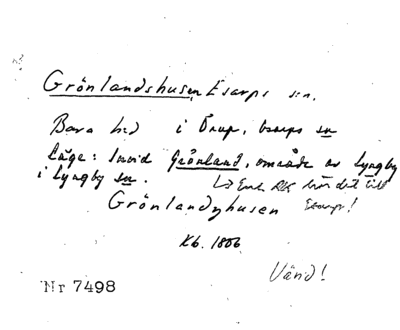 Grönlandshusen, Esarps sn.
Bara hd i Örup, Esarps sn
Läge: Invid Grönland, område av Lyngby
i Lyngby sn.
↳ Enl. hör det till
Grönlandshusen Esarp!
Kb. 1806
Vänd!
Nr 7498